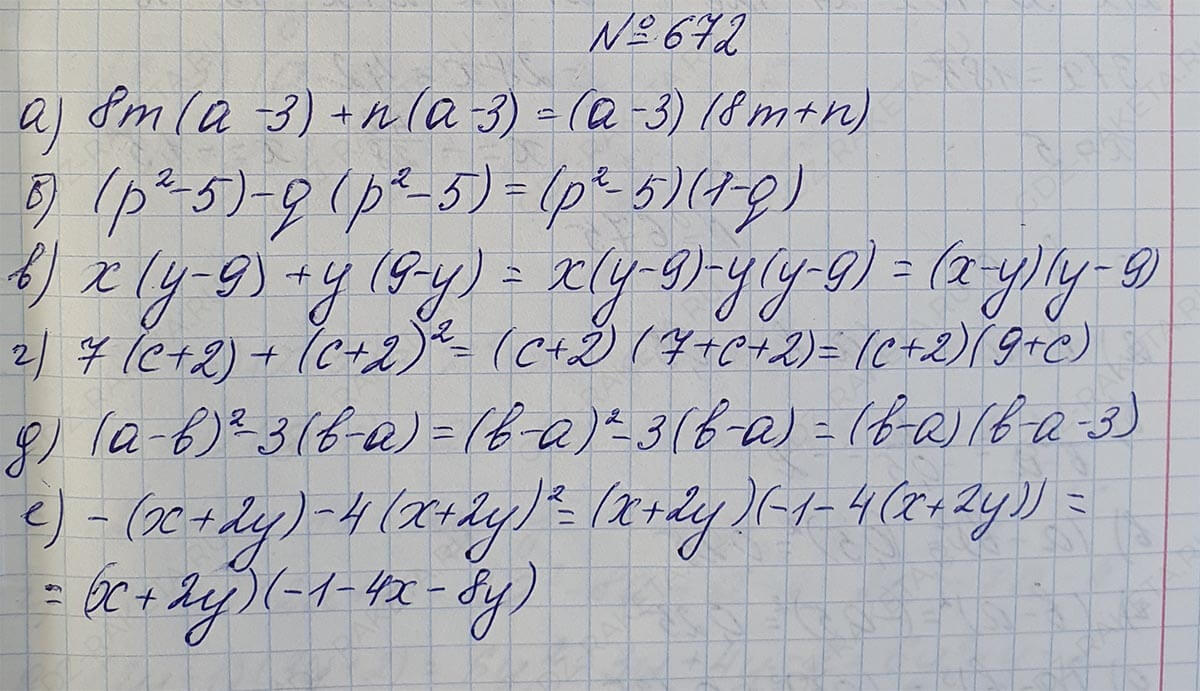 № 672
а) 8m(a-3)+n(a-3)=(a-3)(8m+n)
б) (p²-5)-q(p²-5)=(p²-5)(1-q)
в) x(y-9)+y(9-y)=x(y-9)-y(y-9)=(x-y)(y-9)
г) 7(c+2)+(c+2)²=(c+2)(7+c+2)=(c+2)(9+c)
д) (a-b)²-3(b-a)=(b-a)²-3(b-a)=(b-a)(b-a-3)
е) -(x+2y)-4(x+2y)²=(x+2y)(-1-4(x+2y))=
=(x+2y)(-1-4x-8y)